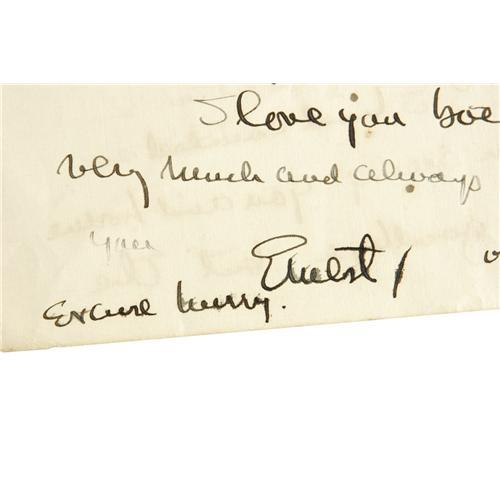 I love you bot
very much and always
your
Ernest /
excuse hurry.